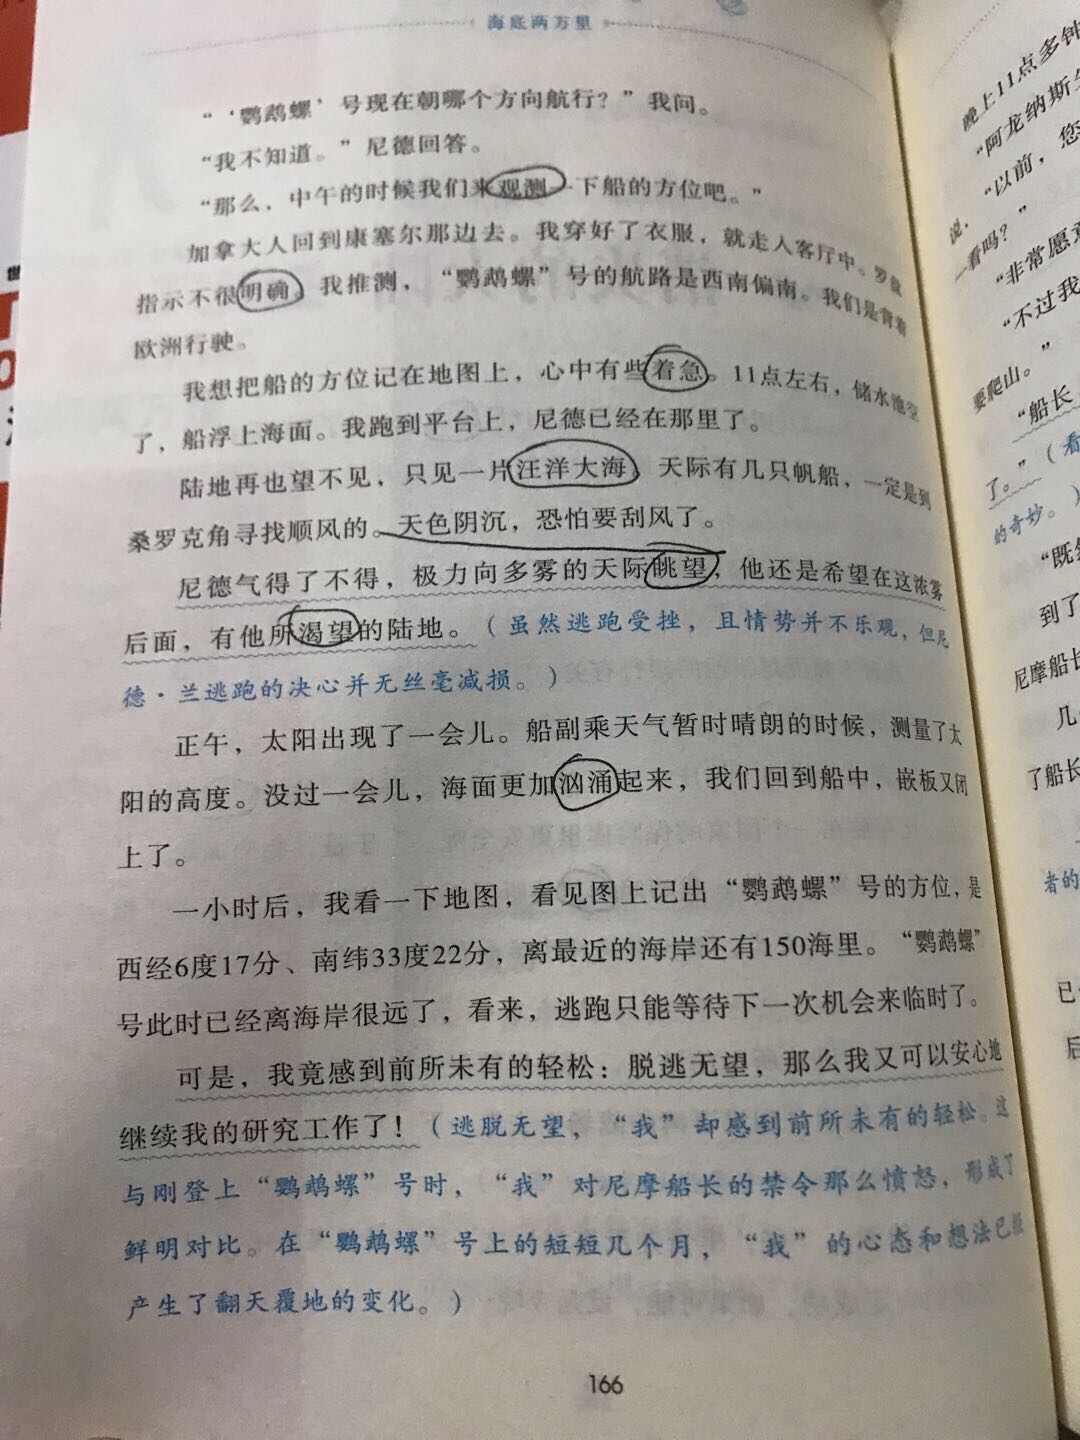 海底两万里
“‘鹦鹉螺’号现在朝哪个方向航行？”我问。
“我不知道。”尼德回答。
“那么，中午的时候我们来观测一下船的方位吧。”
加拿大人回到康塞尔那边去。我穿好了衣服，就走入客厅中。罗盘
指示不很明确。我推测，“鹦鹉螺”号的航路是西南偏南。我们是背着
欧洲行驶。
我想把船的方位记在地图上，心中有些着急。11点左右，储水池空
了，船浮上海面。我跑到平台上，尼德已经在那里了。
陆地再也望不见，只见一片汪洋大海。天际有几只帆船，一定是到
桑罗克角寻找顺风的。天色阴沉，恐怕要刮风了。
尼德气得了不得，极力向多雾的天际眺望，他还是希望在这浓雾
后面，有他所渴望的陆地。（虽然逃跑受挫，且情势并不乐观，但尼
德·兰逃跑的决心并无丝毫减损。）
正午，太阳出现了一会儿。船副乘天气暂时晴朗的时候，测量了太
阳的高度。没过一会儿，海面更加汹涌起来，我们回到船中，嵌板又闭
上了。
一小时后，我看一下地图，看见图上记出“鹦鹉螺”号的方位，是
西经6度17分、南纬33度22分，离最近的海岸还有150海里。“鹦鹉螺”
号此时已经离海岸很远了，看来，逃跑只能等待下一次机会来临时了。
可是，我竟感到前所未有的轻松：脱逃无望，那么我又可以安心地
继续我的研究工作了！（逃脱无望，“我”却感到前所未有的轻松。这
与刚登上“鹦鹉螺”号时，“我”对尼摩船长的禁令那么愤怒，形成了
鲜明对比。在“鹦鹉螺”号上的短短几个月，“我”的心态和想法已经
产生了翻天覆地的变化。）
166
晚上11点多钟
“阿龙纳斯
“以前，您
说，
一看吗？”
“非常愿意
“不过我
”
要爬山。
“船长，
了。”（看
的奇妙。）
“既然
到了
尼摩船长
几
了船长
者的
已
后